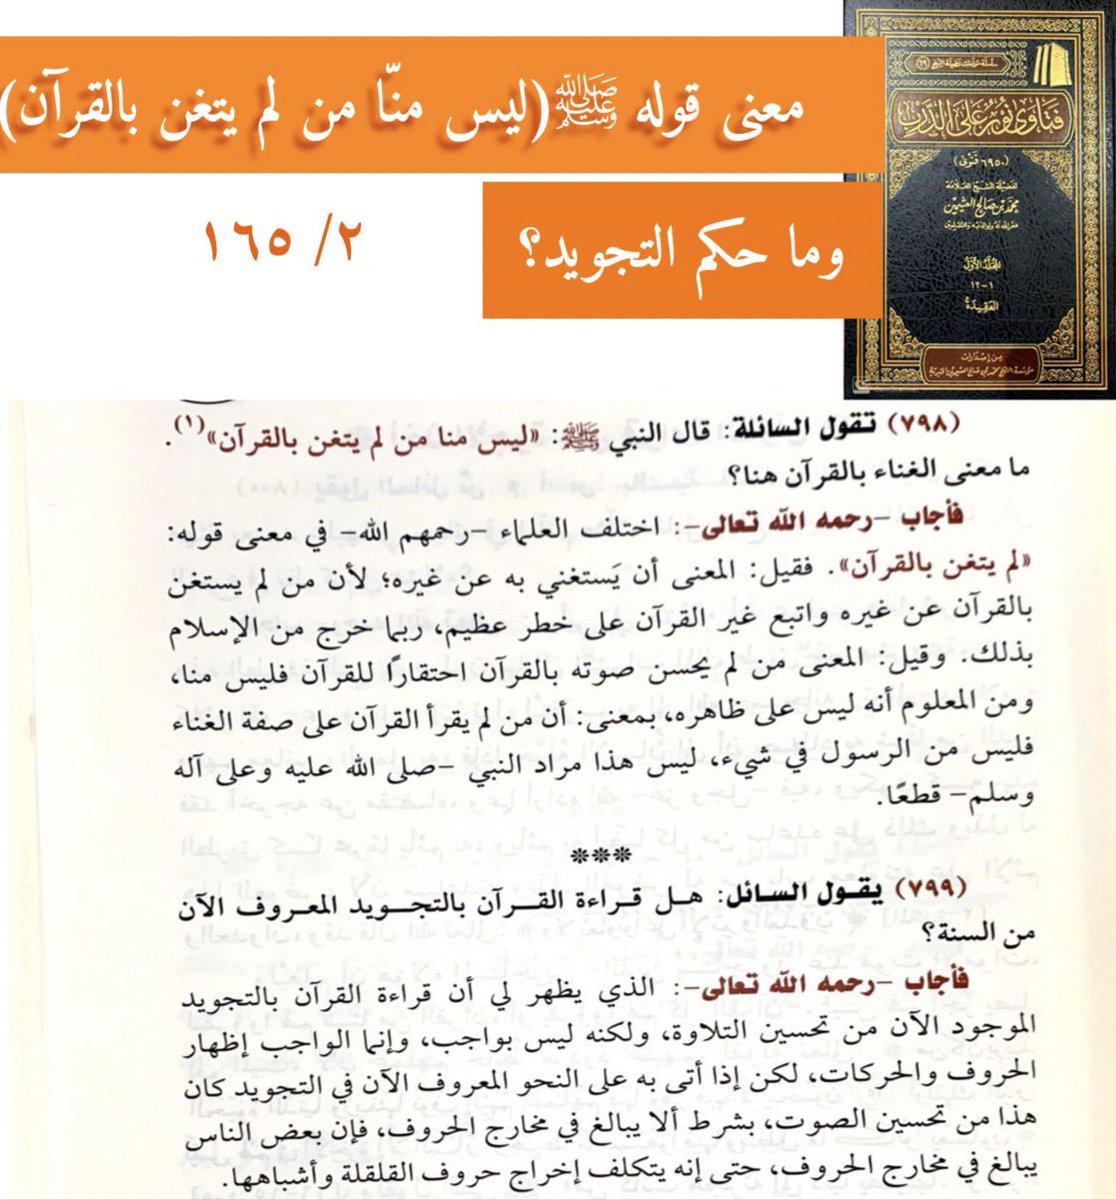 معنى قوله ﷺ(ليس منّا من لم يتغن بالقرآن)
وما حكم التجويد؟
٢/ ١٦٥
فتاوى نور على الدرب
(٦٩٥٠ فتوى)
لفضيلة الشيخ العلامة
محمد بن صالح العثيمين
غفر الله له ولوالديه وللمسلمين
المجلد الأول
١-١٢
العقيدة
من إصدارات
مؤسسة الشيخ محمد بن صالح العثيمين الخيرية
(٧٩٨) تقول السائلة: قال النبي ﷺ: «ليس منا من لم يتغن بالقرآن»(١).
ما معنى الغناء بالقرآن هنا؟
فأجاب -رحمه الله تعالى-: اختلف العلماء -رحمهم الله- في معنى قوله:
«لم يتغن بالقرآن». فقيل: المعنى أن يَستغني به عن غيره؛ لأن من لم يستغن
بالقرآن عن غيره واتبع غير القرآن على خطر عظيم، ربما خرج من الإسلام
بذلك. وقيل: المعنى من لم يحسن صوته بالقرآن احتقارًا للقرآن فليس منا،
ومن المعلوم أنه ليس على ظاهره، بمعنى: أن من لم يقرأ القرآن على صفة الغناء
فليس من الرسول في شيء، ليس هذا مراد النبي -صلى الله عليه وعلى آله
وسلم- قطعًا.
***
(٧٩٩) يقول السائل: هل قراءة القرآن بالتجويد المعروف الآن
من السنة؟
فأجاب -رحمه الله تعالى-: الذي يظهر لي أن قراءة القرآن بالتجويد
الموجود الآن من تحسين التلاوة، ولكنه ليس بواجب، وإنما الواجب إظهار
الحروف والحركات، لكن إذا أتى به على النحو المعروف الآن في التجويد كان
هذا من تحسين الصوت، بشرط ألا يبالغ في مخارج الحروف، فإن بعض الناس
يبالغ في مخارج الحروف، حتى إنه يتكلف إخراج حروف القلقلة وأشباهها.